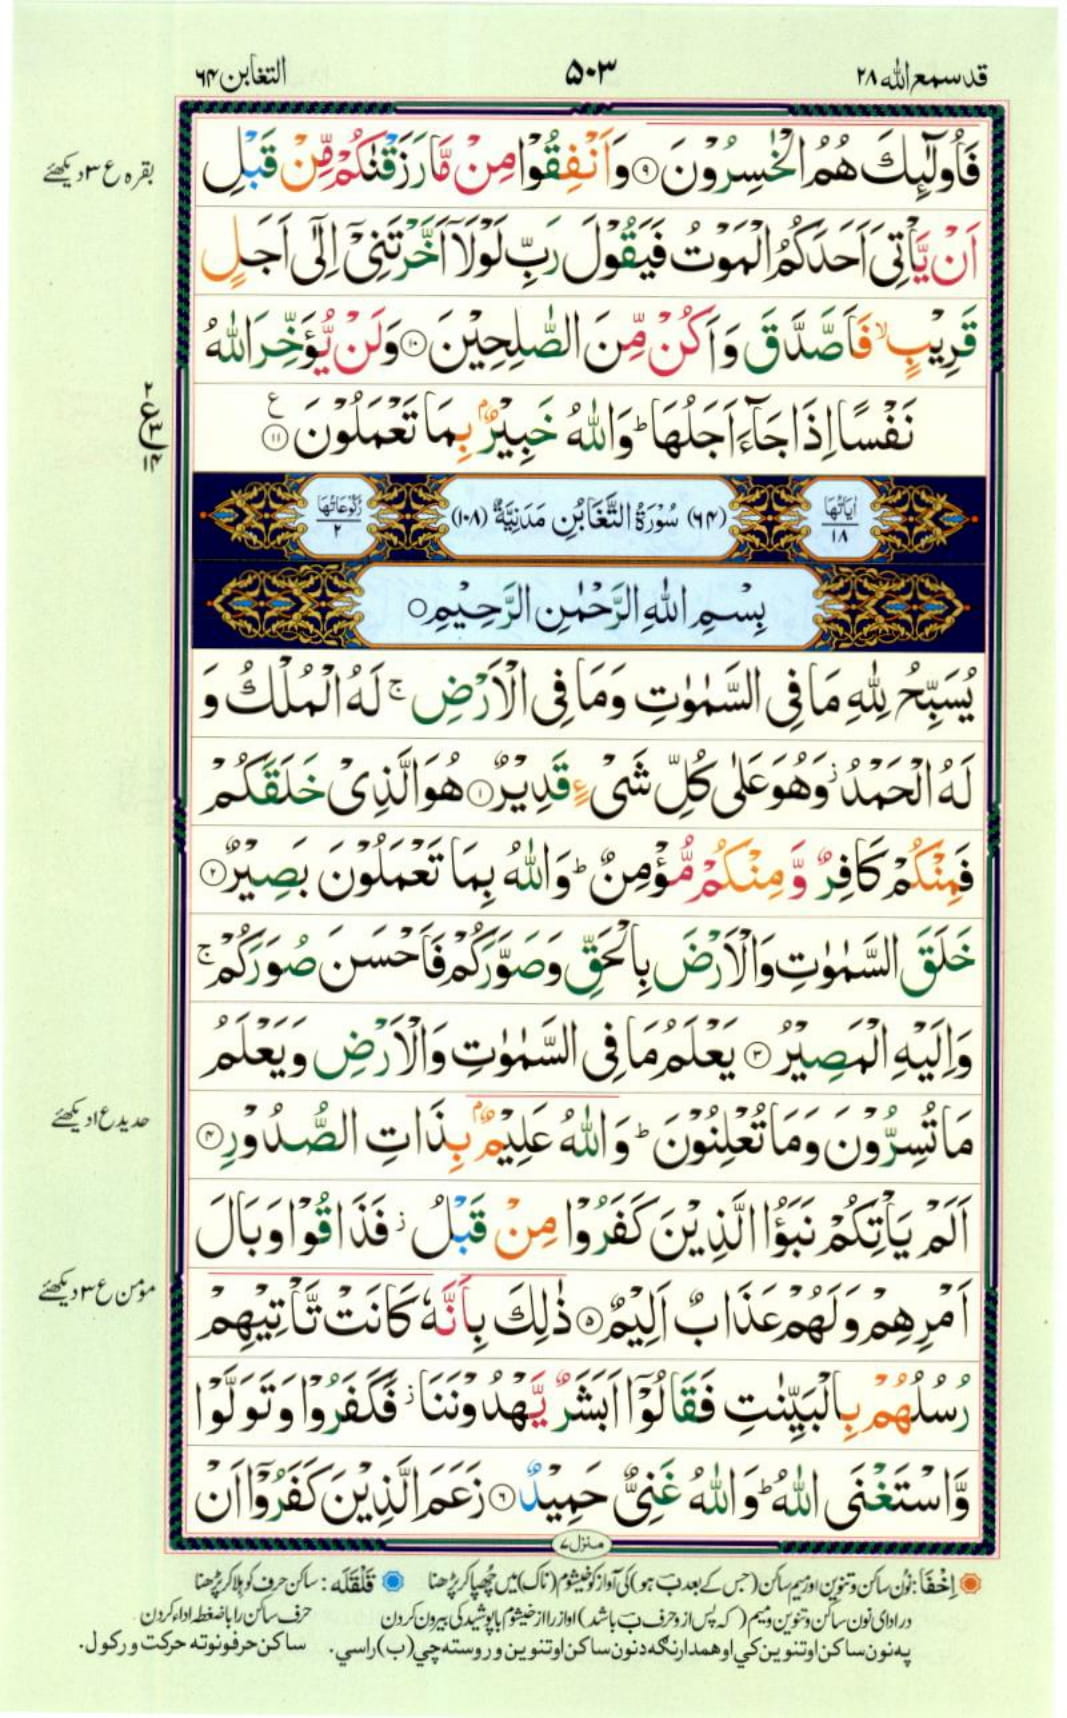 قد سمع الله ۲۸
۵۰۳
التغابن ۶۴
فَاُولٰٓئِكَ هُمُ الْخٰسِرُوْنَ ۹ وَاَنْفِقُوْا مِنْ مَّا رَزَقْنٰكُمْ مِّنْ قَبْلِ
بقرہ ع ۳ دیکھئے
اَنْ يَّاْتِیَ اَحَدَكُمُ الْمَوْتُ فَيَقُوْلَ رَبِّ لَوْلَاۤ اَخَّرْتَنِیْۤ اِلٰۤی اَجَلٍ
قَرِيْبٍ ۙ فَاَصَّدَّقَ وَاَكُنْ مِّنَ الصّٰلِحِيْنَ ۱۰ وَلَنْ يُّؤَخِّرَ اللّٰهُ
نَفْسًا اِذَا جَآءَ اَجَلُهَا ؕ وَاللّٰهُ خَبِيْرٌۢ بِمَا تَعْمَلُوْنَ ۱۱ ع
۲
ع ۳
۱۴
اٰيَاتُهَا ۱۸
(۶۴) سُوْرَةُ التَّغَابُنِ مَدَنِيَّةٌ (۱۰۸)
رُكُوْعَاتُهَا ۲
بِسْمِ اللّٰهِ الرَّحْمٰنِ الرَّحِيْمِ ○
يُسَبِّحُ لِلّٰهِ مَا فِی السَّمٰوٰتِ وَمَا فِی الْاَرْضِ ۚ لَهُ الْمُلْكُ وَ
لَهُ الْحَمْدُ ؗ وَهُوَ عَلٰی كُلِّ شَیْءٍ قَدِيْرٌ ۱ هُوَ الَّذِیْ خَلَقَكُمْ
فَمِنْكُمْ كَافِرٌ وَّمِنْكُمْ مُّؤْمِنٌ ؕ وَاللّٰهُ بِمَا تَعْمَلُوْنَ بَصِيْرٌ ۲
خَلَقَ السَّمٰوٰتِ وَالْاَرْضَ بِالْحَقِّ وَصَوَّرَكُمْ فَاَحْسَنَ صُوَرَكُمْ ۚ
وَاِلَيْهِ الْمَصِيْرُ ۳ يَعْلَمُ مَا فِی السَّمٰوٰتِ وَالْاَرْضِ وَيَعْلَمُ
مَا تُسِرُّوْنَ وَمَا تُعْلِنُوْنَ ؕ وَاللّٰهُ عَلِيْمٌۢ بِذَاتِ الصُّدُوْرِ ۴
حدید ع ۱ دیکھئے
اَلَمْ يَاْتِكُمْ نَبَؤُا الَّذِيْنَ كَفَرُوْا مِنْ قَبْلُ ؗ فَذَاقُوْا وَبَالَ
اَمْرِهِمْ وَلَهُمْ عَذَابٌ اَلِيْمٌ ۵ ذٰلِكَ بِاَنَّهٗ كَانَتْ تَّاْتِيْهِمْ
مومن ع ۳ دیکھئے
رُسُلُهُمْ بِالْبَيِّنٰتِ فَقَالُوْۤا اَبَشَرٌ يَّهْدُوْنَنَا ؗ فَكَفَرُوْا وَتَوَلَّوْا
وَّاسْتَغْنَی اللّٰهُ ؕ وَاللّٰهُ غَنِیٌّ حَمِيْدٌ ۶ زَعَمَ الَّذِيْنَ كَفَرُوْۤا اَنْ
منزل ۷
اِخْفَا: نون ساکن و تنوین اور میم ساکن (جس کے بعد ب ہو) کی آواز کو خیشوم (ناک) میں چھپا کر پڑھنا قَلْقَلَه: ساکن حرف کو ہلا کر پڑھنا
در ادای نون ساکن و تنوین و میم (که پس از و حرف ب باشد) آواز را از خیشوم با پوشیدگی بیرون کردن حرف ساکن را با ضغطه اداء کردن
په نون ساکن او تنوین کي او همدارنګه د نون ساکن او تنوین و روسته چي (ب) راسي. ساکن حرفونو ته حرکت ورکول.